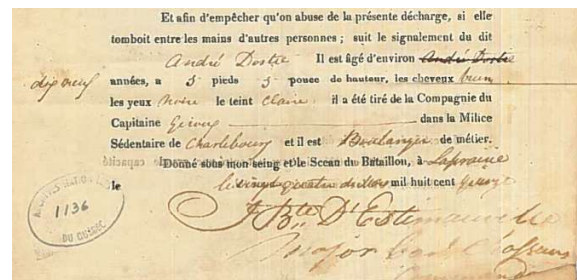 Et afin d'empêcher qu'on abuse de la présente décharge, si elle
tomboit entre les mains d'autres personnes ; suit le signalement du dit
André Dostie Il est âgé d'environ André Dostie
dix neuf années, a 5 pieds 5 pouce de hauteur, les cheveux brun
les yeux Noire le teint Claire il a été tiré de la Compagnie du
Capitaine dans la Milice
Sédentaire de Charlebourg et il est Boulanger de métier.
Donné sous mon seing et le Sceau du Bataillon, à Laprairie
le vingt quatre mil huit cent
1136
DU QUEBEC
J Bte D'Estimauville
Major